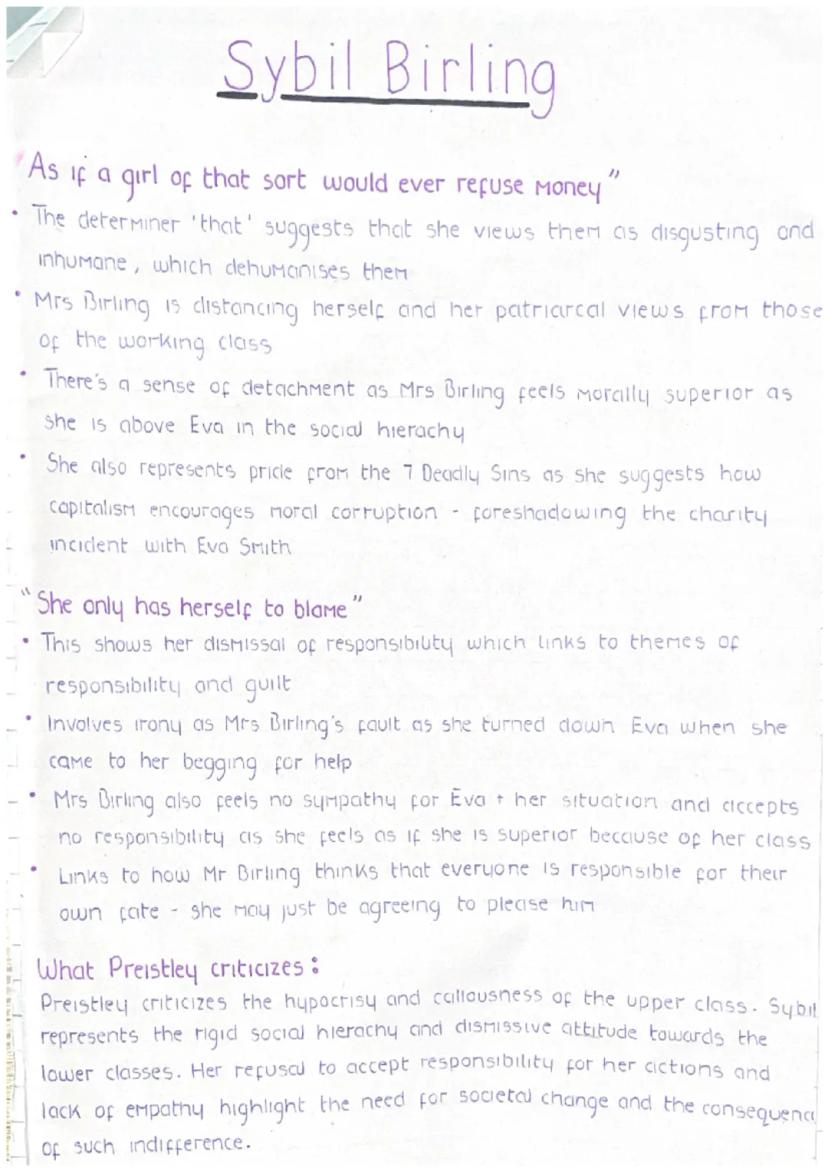 Sybil Birling
"As if a girl of that sort would ever refuse money"
• The determiner 'that' suggests that she views them as disgusting and
inhumane, which dehumanises them
• Mrs Birling is distancing herself and her patriarcal views from those
of the working class
• There's a sense of detachment as Mrs Birling feels morally superior as
she is above Eva in the social hierachy
• She also represents pride from the 7 Deadly Sins as she suggests how
capitalism encourages moral corruption - foreshadowing the charity
incident with Eva Smith
"She only has herself to blame"
• This shows her dismissal of responsibility which links to themes of
responsibility and guilt
• Involves irony as Mrs Birling's fault as she turned down Eva when she
came to her begging for help
• Mrs Birling also feels no sympathy for Eva + her situation and accepts
no responsibility as she feels as if she is superior because of her class
• Links to how Mr Birling thinks that everyone is responsible for their
own fate - she may just be agreeing to please him
What Preistley criticizes:
Preistley criticizes the hypocrisy and callousness of the upper class. Sybil
represents the rigid social hierachy and dismissive attitude towards the
lower classes. Her refusal to accept responsibility for her actions and
lack of empathy highlight the need for societal change and the consequenc
of such indifference.